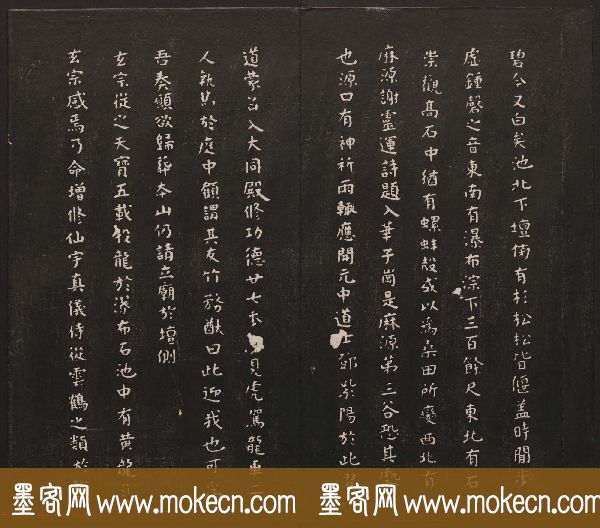 碧今又白矣池北下壇傍有杉松松皆偃蓋時聞步
虛鍾磬之音東南有瀑布淙下三百餘尺東北有石
崇觀高石中猶有螺蚌殼或以為桑田所變西北有
麻源謝靈運詩題入華子崗是麻源第三谷恐其處
也源口有神祈雨輒應開元中道士鄧紫陽於此
道蒙召入大同殿修功德廿七年 見虎駕龍車二
人執 於庭中顧謂其友竹務猷曰此迎我也可
吾奏願欲歸葬本山仍請立廟於壇側
玄宗從之天寶五載投龍於瀑布石池中有黃龍
玄宗感焉乃命增修仙宇真儀侍從雲鶴之類於
墨客网 www.mokecn.com 墨客网 www.mokecn.com